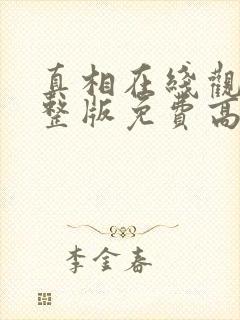 真相在线觀
整版免費高
李金春